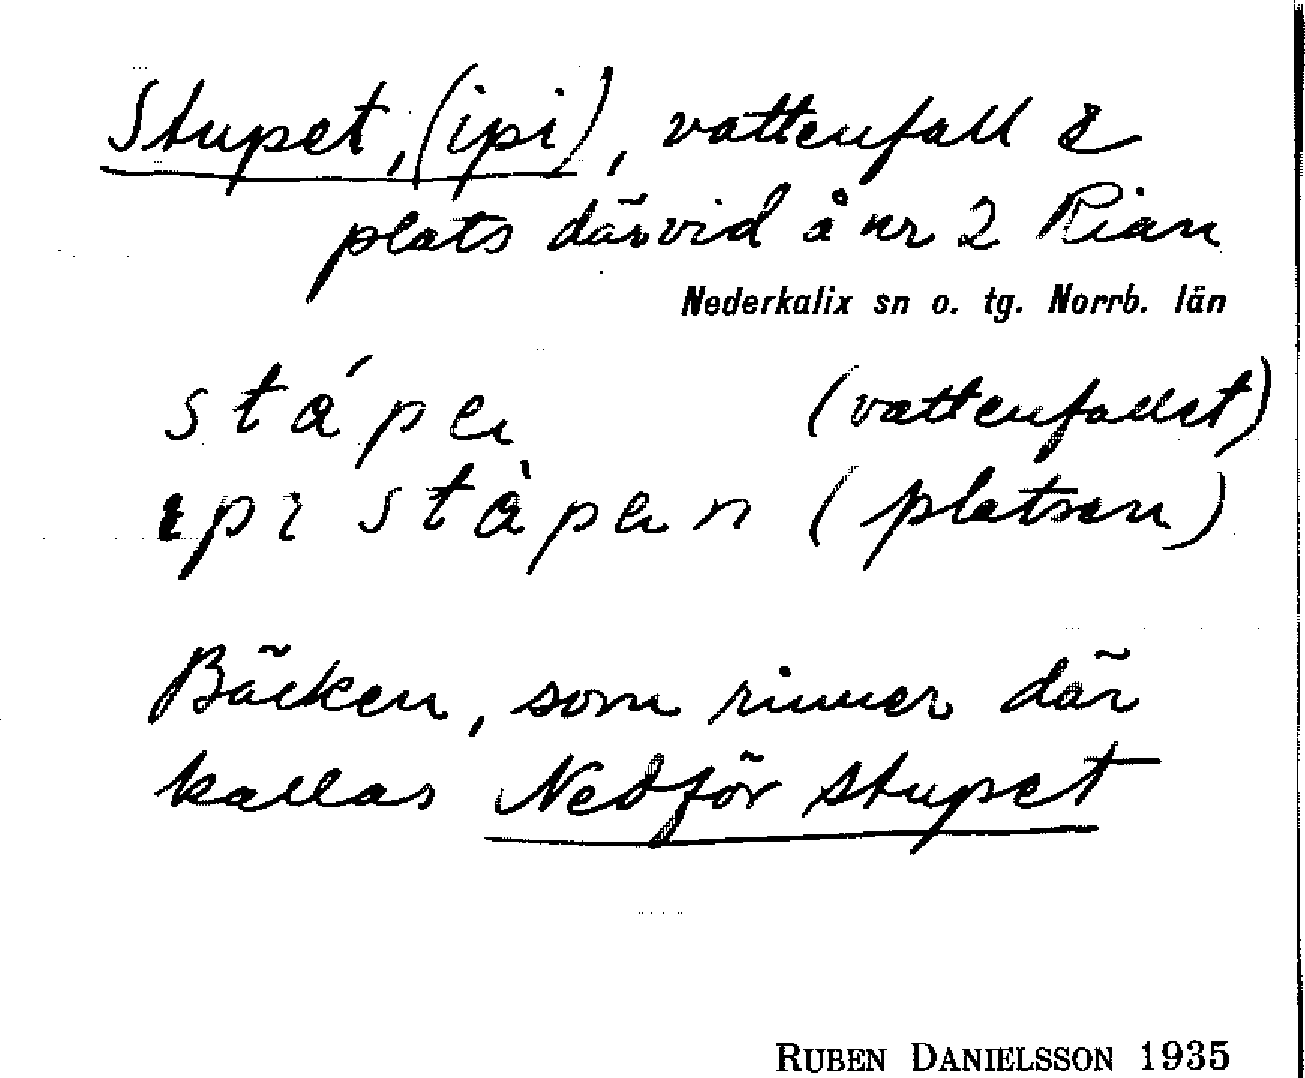 Stupet, (ipi), vattenfall &
plats därvid å nr 2 Rian
Nederkalix sn o. tg. Norrb. län
stá̀pe (vattenfallet)
ıpı stàpen (platsen)
Bäcken, som rinner där
kallas Nedför stupet
RUBEN DANIELSSON 1935